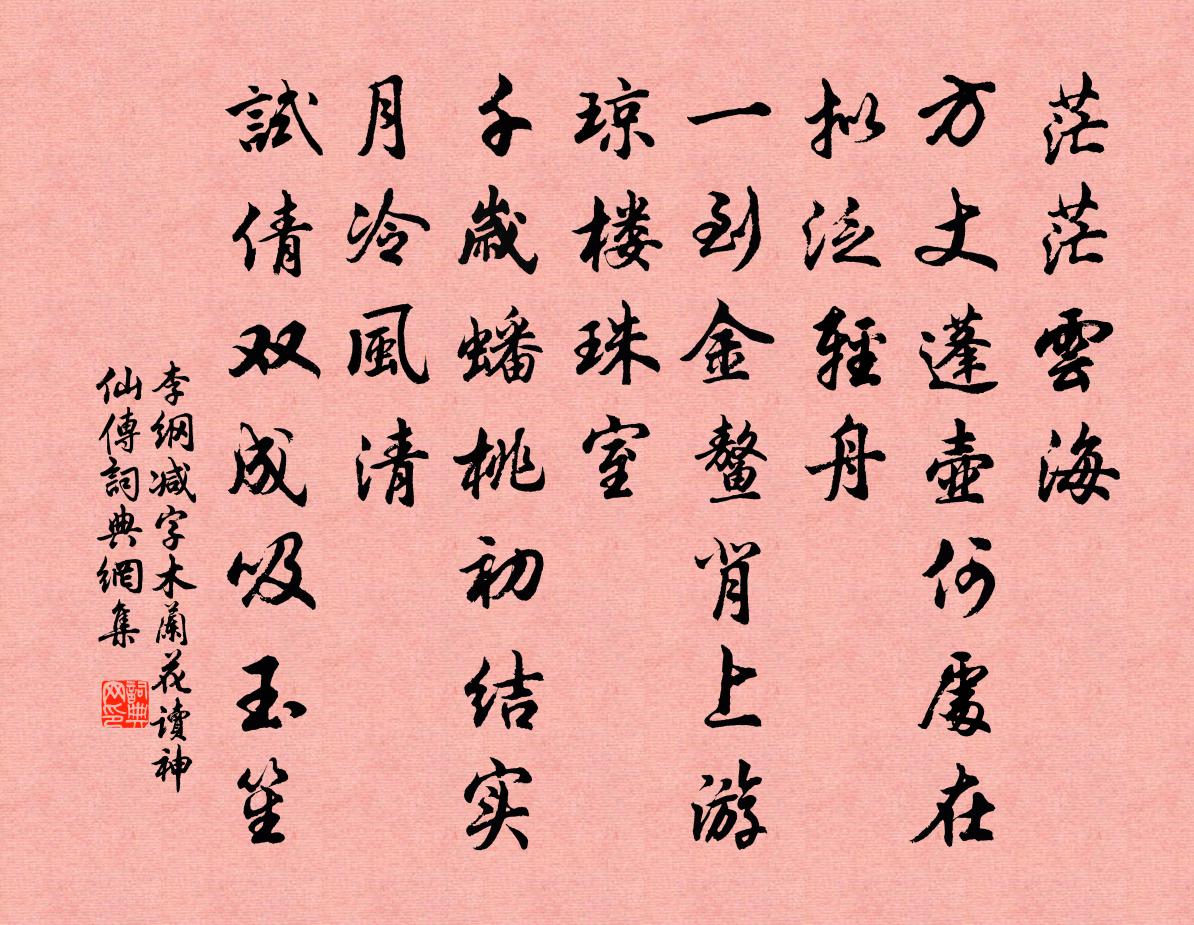 茫茫雲海
方丈蓬壺何處在
拟泛輕舟
一到金鳌背上游
琼楼珠室
千歲蟠桃初结实
月冷風清
試倩双成吸玉笙
李纲减字木蘭花讀神
仙傳詞典網集
詞典
网印